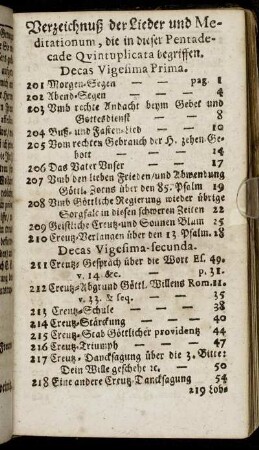 Verzeichnuß der Lieder und Me-
ditationum, die in dieser Pentade-
cade Qvintuplicata begriffen.
Decas Vigesima Prima.
201 Morgen-Segen — — pag. 1
202 Abend-Segen — — 4
203 Umb rechte Andacht beym Gebet und
Gottesdienst — — 8
204 Buß- und Fasten-Lied — — 10
205 Vom rechten Gebrauch der H. zehen Ge-
bott — — 14
206 Das Vater Unser — — 17
207 Umb den lieben Frieden/und Abwendung
Göttl. Zorns über den 85. Psalm 19
208 Umb Göttliche Regierung wieder übrige
Sorgfalt in diesen schweren Zeiten 22
209 Geistliche Creutz-und Sonnen Blum 25
210 Creutz-Verlangen über den 13 Psalm. 28
Decas Vigesima-secunda.
211 Creutz-Gespräch über die Wort Es. 49.
v. 14 &c. — p. 31.
212 Creutz-Abgrund Göttl. Willens Rom. 11.
v. 33. & seq. — 35
213 Creutz-Schule — — 38
214 Creutz-Stärckung — — 40
215 Creutz-Stab Göttlicher providentz 44
216 Creutz-Triumph — — 47
217 Creutz-Dancksagung über die 3. Bitte:
Dein Wille geschehe ꝛc. — 50
218 Eine andere Creutz-Dancksagung 54
219 Lob-